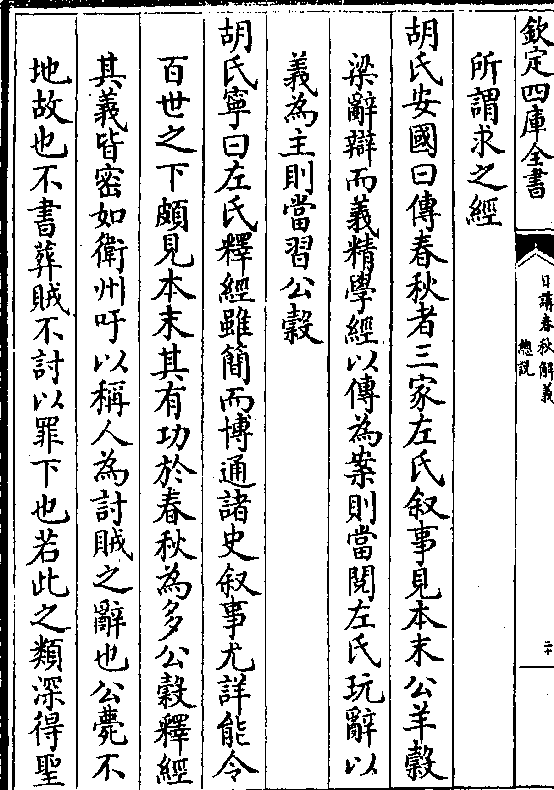 欽定四庫全書
日講春秋解義
總說
二十
所謂求之經
胡氏安國曰傳春秋者三家左氏叙事見本末公羊穀
梁辭辯而義精學經以傳為案則當閱左氏玩辭以
義為主則當習公穀
胡氏寧曰左氏釋經雖簡而博通諸史叙事尤詳能令
百世之下頗見本末其有功於春秋為多公穀釋經
其義皆密如衛州吁以稱人為討賊之辭也公薨不
地故也不書葬賊不討以罪下也若此之類深得聖